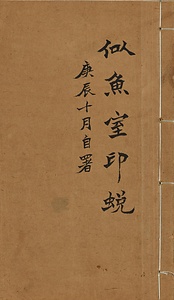 似魚室印蛻
庚辰十月自署